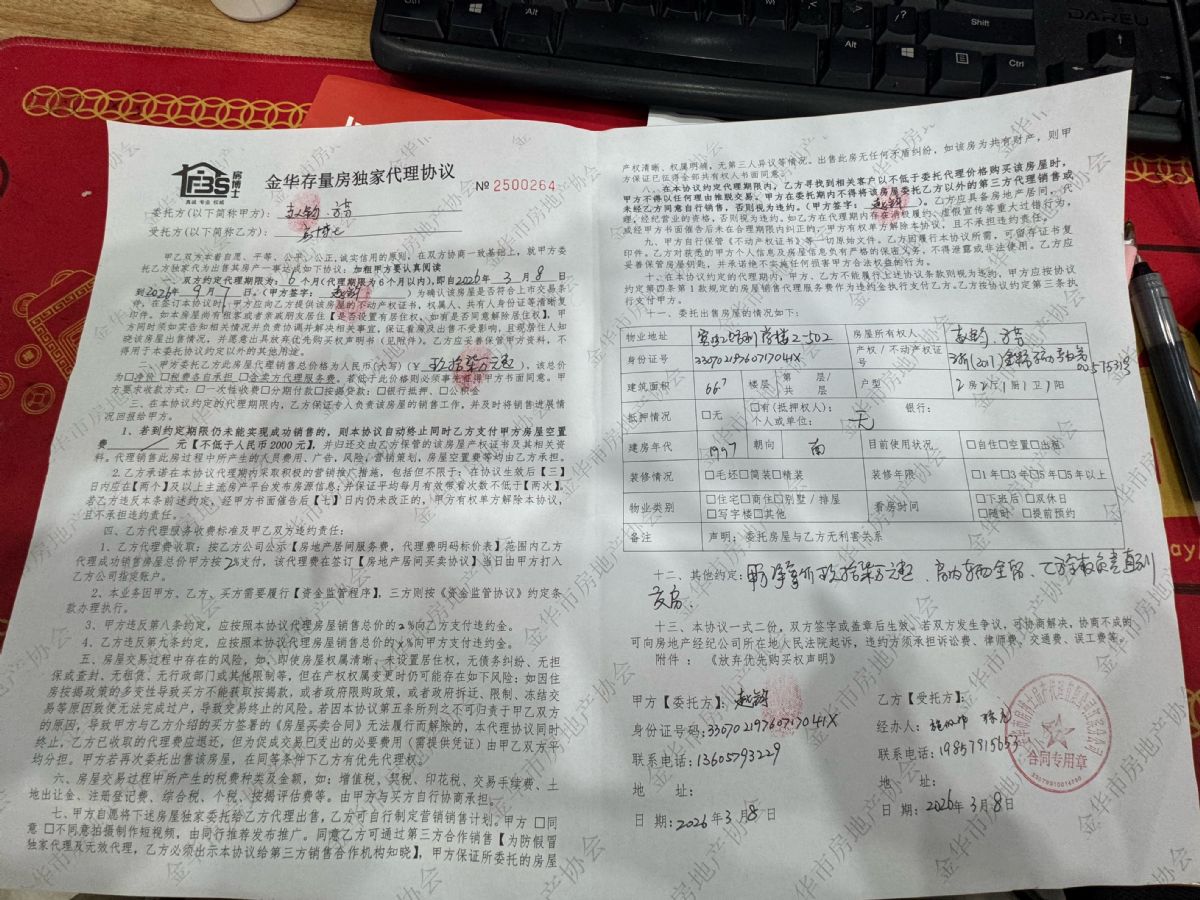 房博士
FBS
真诚 专业 权威
金华存量房独家代理协议
№ 2500264
委托方(以下简称甲方):
受托方(以下简称乙方): 房博士
甲乙双方本着自愿、平等、公平、公正、诚实信用的原则，在双方协商一致基础上，就甲方委
托乙方独家代为出售其房产一事达成如下协议：加粗甲方要认真阅读
双方约定代理期限为：6个月(代理期限为6个月以内)，即自2026年3月8日
到2026年9月7日。(甲方签字： )为确认该房屋是否符合上市交易条
件。在签订本协议时，甲方应向乙方提供该房屋的不动产权证书、权属人、共有人身份证等清晰复
印件。如本房屋尚有租客或者亲戚朋友居住【是否设置有居住权、如有是否同意解除居住权】，甲
方同时须如实告知相关情况并负责协调并解决相关事宜，保证看房及出售不受影响，且现居住人知
晓该房屋出售情况，并愿意出具放弃优先购买权声明书(见附件)。乙方应妥善保管甲方资料，不
得用于本委托协议约定以外的其他用途。
甲方委托乙方此房屋代理销售总价格为人民币(大写)(￥ 玖拾柒万元整 )，该总价
为□净价 □税费各自承担 □含卖方代理服务费。若低于此价格则必须事先征得甲方书面同意。甲
方要求收款方式：□一次性收费□分期付款□按揭贷款：□银行抵押、□公积金
三、在本协议约定的代理期限内，乙方保证专人负责该房屋的销售工作，并及时将销售进展情
况回报给甲方。
1、若到约定期限仍未能实现成功销售的，则本协议自动终止同时乙方支付甲方房屋空置
费 / 元【不低于人民币2000元】，并归还交由乙方保管的该房屋产权证书及其相关资
料。代理销售此房过程中所产生的人员费用、广告，风险，营销策划，房屋空置费等均由乙方承担。
2.乙方承诺在本协议代理期内采取积极的营销推广措施，包括但不限于：在协议生效后【三】
日内应在【两个】及以上主流房产平台发布房源信息；并保证平均每月有效带看次数不低于【两次】。
若乙方违反本条前述约定，经甲方书面催告后【七】日内仍未改正的，甲方有权单方解除本协议，
且不承担违约责任。
四、乙方代理服务收费标准及甲乙双方违约责任：
1、乙方代理费收取：按乙方公司公示【房地产居间服务费，代理费明码标价表】范围内乙方
代理成功销售房屋总价甲方按2%支付，该代理费在签订【房地产居间买卖协议】当日由甲方打入
乙方公司指定账户。
2、本业务因甲方、乙方、买方需要履行【资金监管程序】，三方则按《资金监管协议》约定条
款办理执行。
3、甲方违反第八条约定，应按照本协议代理房屋销售总价的2%向乙方支付违约金。
4、乙方违反第九条约定，应按照本协议代理房屋销售总价的 %向甲方支付违约金。
五、房屋交易过程中存在的风险，如，即使房屋权属清晰、未设置居住权，无债务纠纷、无担
保或查封、无租赁、无行政部门或其他限制等，但在产权权属变更时仍可能存在如下风险：如因住
房按揭政策的多变性导致买方不能获取按揭款，或者政府限购政策，或者政府拆迁、限制、冻结交
易等原因致使无法完成过户，导致交易终止的风险。若因本协议第五条所列之不可归责于甲乙双方
的原因，导致甲方与乙方介绍的买方签署的《房屋买卖合同》无法履行而解除的，本代理协议同时
终止，乙方已收取的代理费应退还，但为促成交易已支出的必要费用(需提供凭证)由甲乙双方平
均分担。甲方若再次委托出售该房屋，在同等条件下乙方有优先代理权。
六、房屋交易过程中所产生的税费种类及金额，如：增值税、契税、印花税、交易手续费、土
地出让金、注册登记费、综合税、个税、按揭评估费等。由甲方与买方自行协商承担。
七、甲方自愿将下述房屋独家委托给乙方代理出售，乙方可自行制定营销销售计划，甲方 □同
意 □不同意拍摄制作短视频，由同行推荐发布推广。同意乙方可通过第三方合作销售【为防假冒
独家代理及无效代理，乙方必须出示本协议给第三方销售合作机构知晓】，甲方保证所委托的房屋
产权清晰、权属明确，无第三人异议等情况。出售此房无任何矛盾纠纷，如该房为共有财产，则甲
方保证已征得全部共有权人书面同意。
八、在本协议约定代理期限内，乙方寻找到相关客户以不低于委托代理价格购买该房屋时，
甲方不得以任何理由推脱交易。甲方在委托期内不得将该房屋委托乙方以外的第三方代理销售或
未经乙方同意自行销售，否则视为违约。(甲方签字： )。乙方应具备房地产居间，代
理，经纪营业的资格，否则视为违约。如乙方在代理期内存在消极履约、虚假宣传等重大过错行为，
或经甲方书面催告后未在合理期限内纠正的，甲方有权单方解除本协议，且不承担违约责任。
九、甲方自行保管《不动产权证书》等一切原始文件。乙方因履行本协议所需，可留存证书复
印件。乙方对获悉的甲方个人信息及房屋信息负有严格的保密义务，不得泄露或非法使用。乙方应
妥善保管房屋钥匙，并承诺绝不实施任何损害甲方合法权益的行为。
十、在本协议约定的代理期内，甲方、乙方不能履行上述协议条款则视为违约，甲方应按协议
约定第四条第1款规定的房屋销售代理服务费作为违约金执行支付乙方。乙方按协议约定第三条执
行支付甲方。
十一、委托出售房屋的情况如下：
物业地址 2-502 房屋所有权人
身份证号 33070219760717041X 产权/不动产权证号 00575313
建筑面积 66.7 楼层 第 层/共 层 户型 2房2厅1厨1卫1阳
抵押情况 □无 □有(抵押权人)：个人或单位： 无 银行：
建房年代 1997 朝向 南 目前使用状况 □自住□空置□出租
装修情况 □毛坯□简装□精装 装修年限 □1年□3年□5年□5年以上
物业类别 □住宅□商住□别墅/排屋 □写字楼□其他 看房时间 □下班后 □双休日 □随时 □提前预约
备注 声明：委托房屋与乙方无利害关系
十二、其他约定：甲方净拿价玖拾柒万元整、房内东西全留、乙方有权负责直到
交房.
十三、本协议一式二份，双方签字或盖章后生效。若双方发生争议，可协商解决，协商不成的
可向房地产经纪公司所在地人民法院起诉，违约方须承担诉讼费、律师费、交通费、误工费等。
附件 ：《放弃优先购买权声明》
甲方【委托方】：
身份证号码：33070219760717041X
联系电话：13605793229
地 址：
日 期：2026年3月8日
乙方【受托方】：
经办人：
联系电话：19857915653
地 址：
日 期：2026年3月8日
合同专用章
金华市房地产协会
DAREU
Ctrl
Alt
Alt
Shift
Ctrl